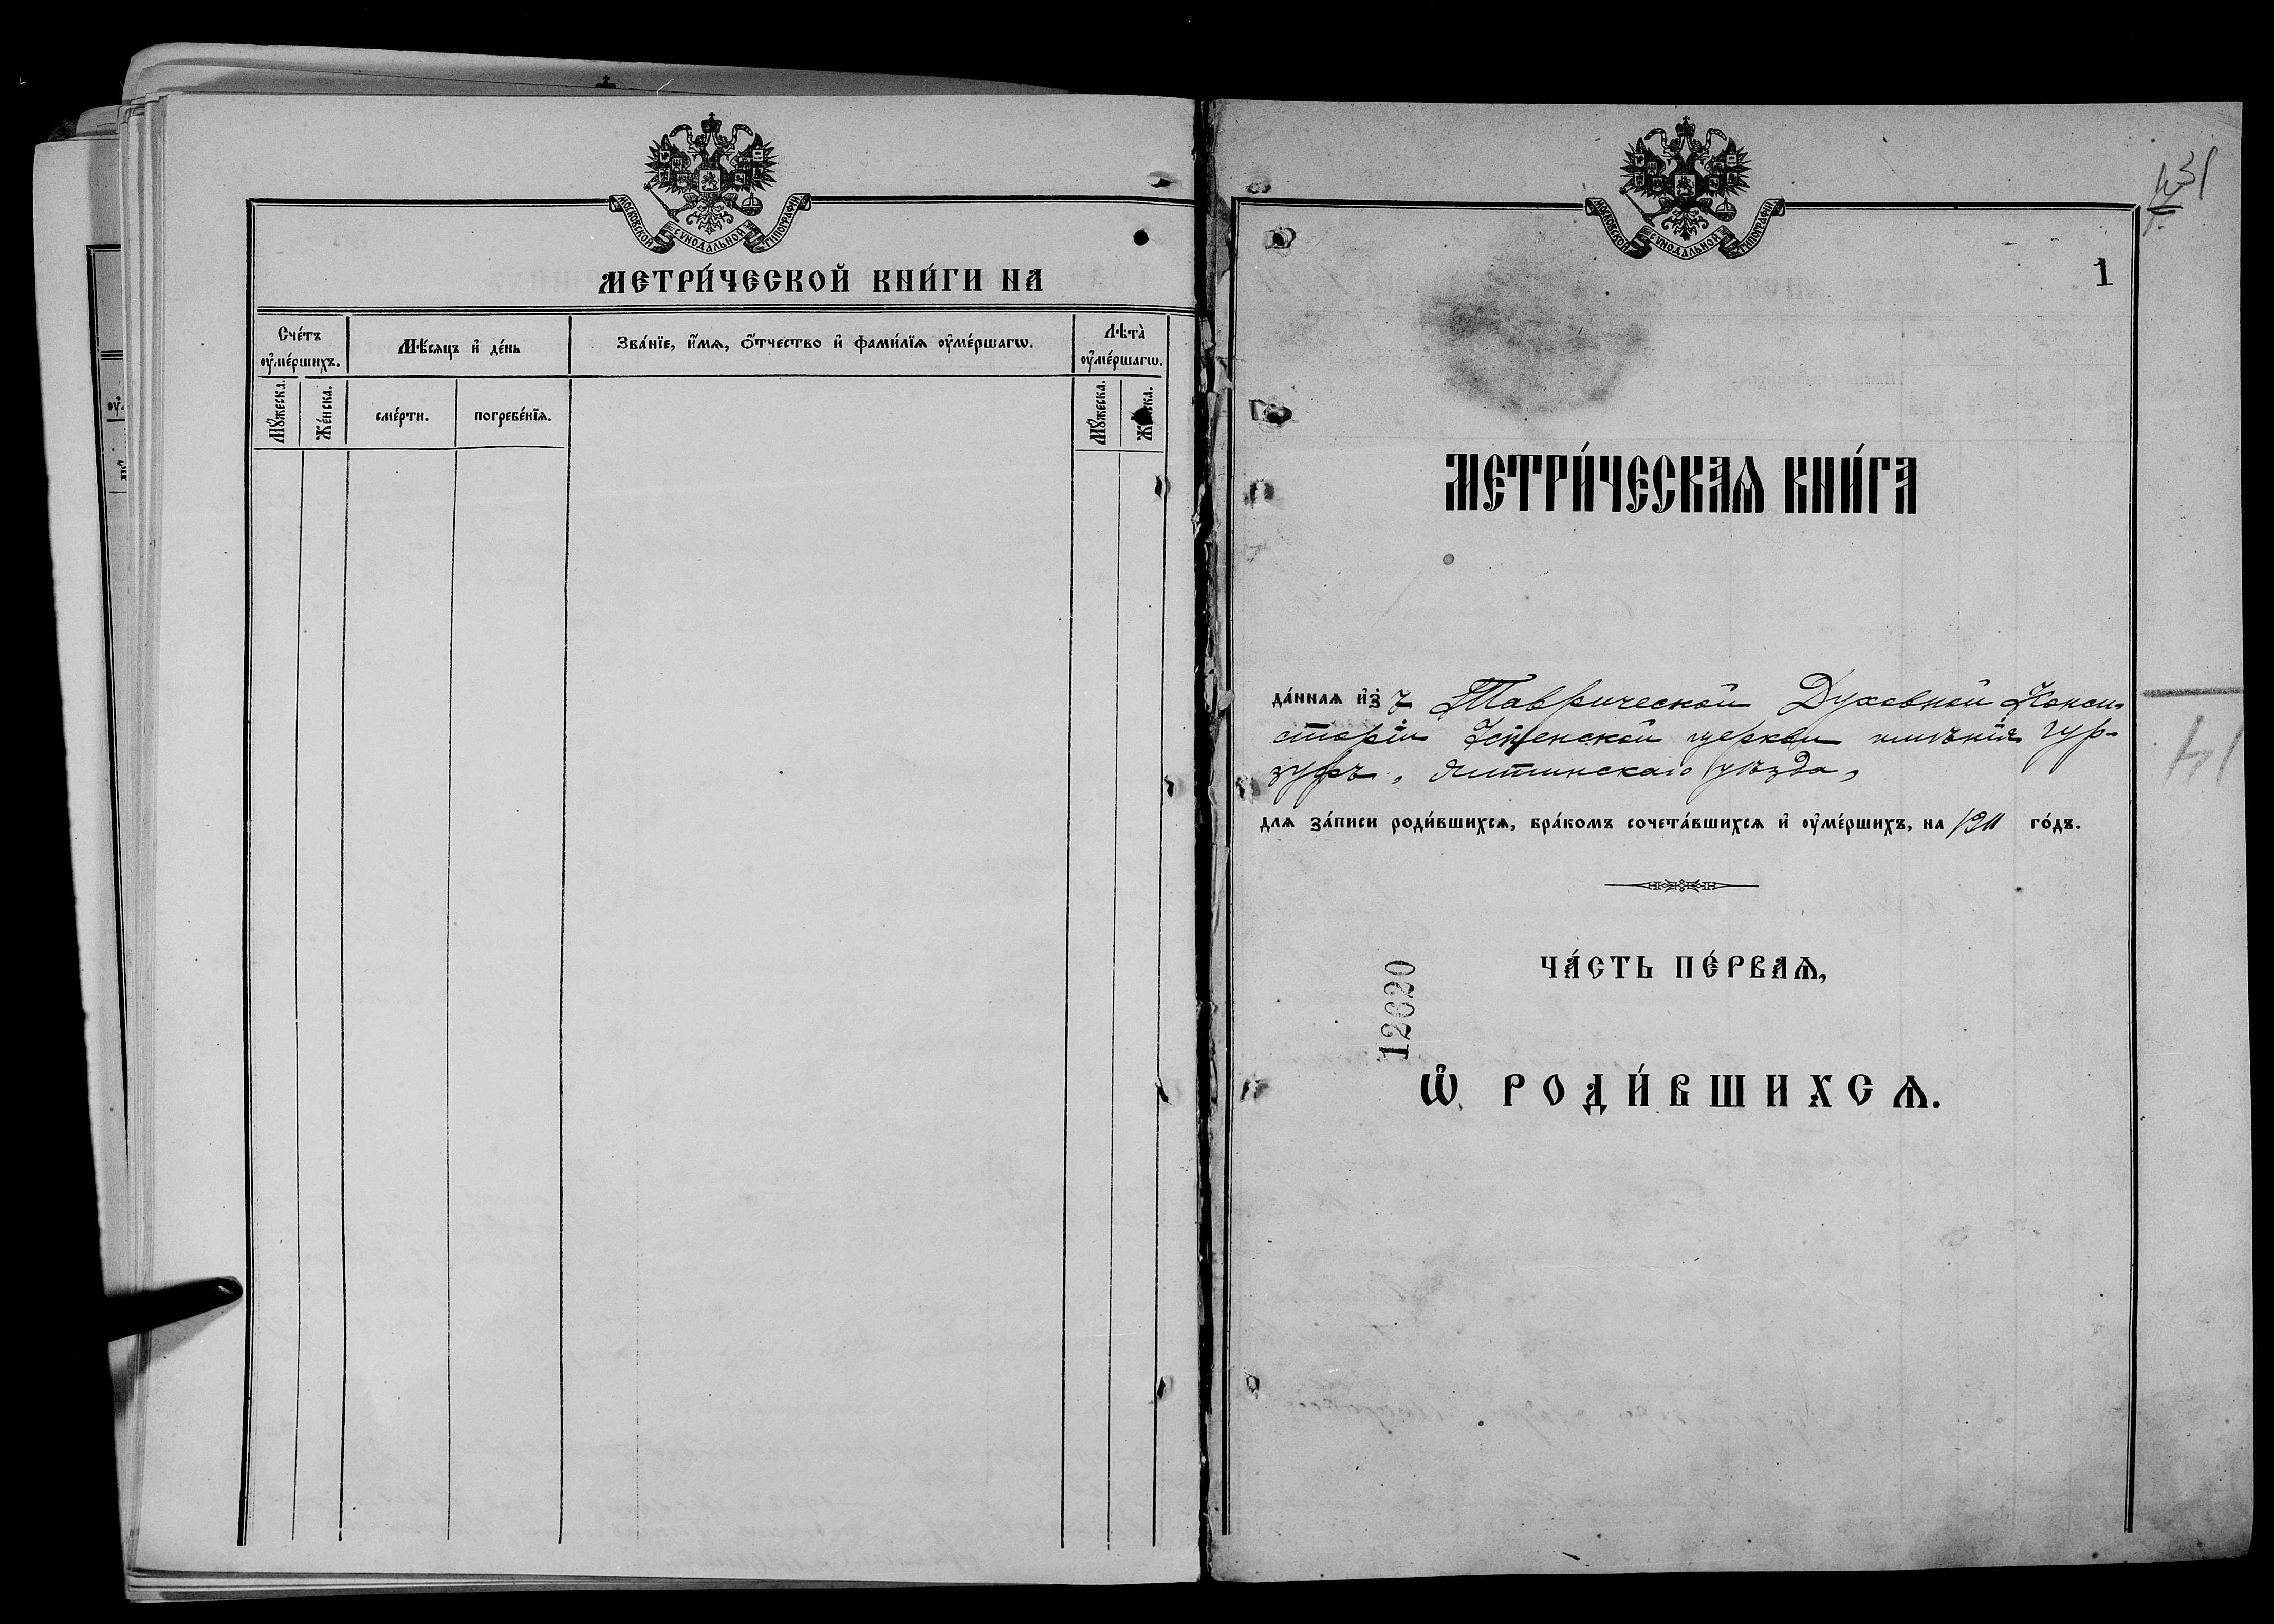 МОСКОВСКОЙ СѴНОДАЛЬНОЙ ТИПОГРАФІИ
МЕТРИ́ЧЕСКОЙ КНИ́ГИ НА
Сче́тъ ᲂу҆ме́ршихъ.
Мѣ́сѧцъ и҆ де́нь
Зва́нїе, и҆́мѧ, ѻ҆́тчество и҆ фами́лїѧ ᲂу҆ме́ршагѡ.
Лѣ́та̀ ᲂу҆ме́ршагѡ.
Мꙋ́жеска.
Же́нска.
сме́рти.
погребе́нїѧ.
Мꙋ́жеска.
МОСКОВСКОЙ СѴНОДАЛЬНОЙ ТИПОГРАФІИ
31
1
МЕТРИ́ЧЕСКАѦ КНИ́ГА
да́ннаѧ и҆з̾ ъ Таврической Духовной Конси-
сторіи Успенской церкви имѣнія Гур-
зуфъ, Ялтинскаго уѣзда,
длѧ за́писи роди́вшихсѧ, бра́комъ сочета́вшихсѧ и҆ ᲂу҆ме́ршихъ, на 1911 го́дъ.
ЧА́СТЬ ПЕ́РВАѦ,
12620
Ѽ РОДИ́ВШИХСѦ.
14